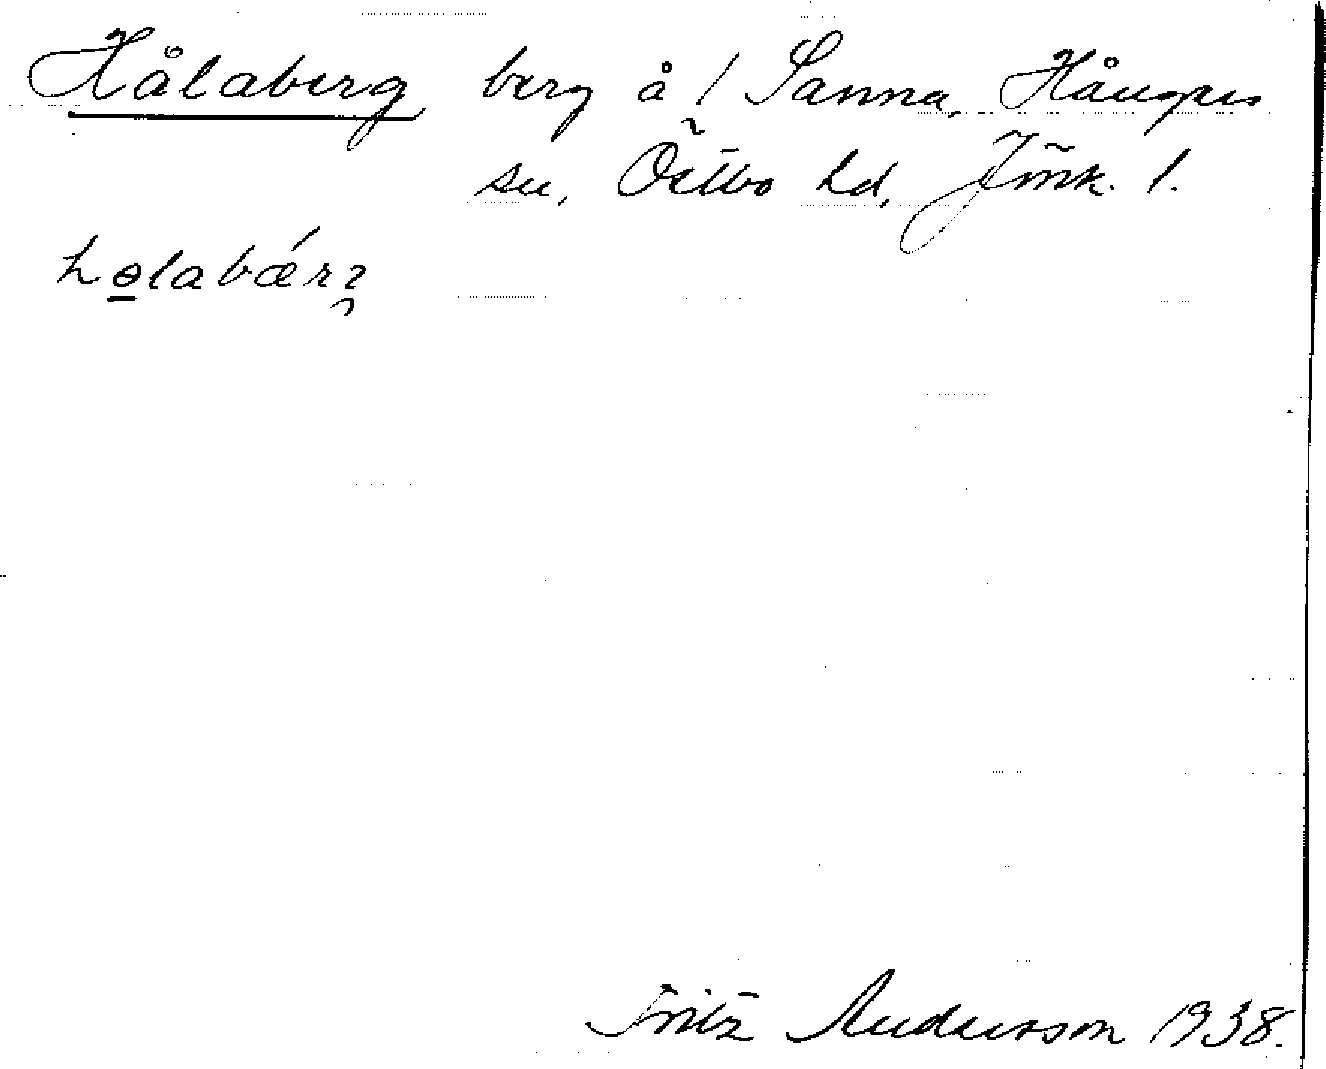 Hålaberg berg å / Sanna, Hånger
sn, Östbo hd, Jönk. l.
hɵlabǽrʒ
Fritz Andersson 1938.